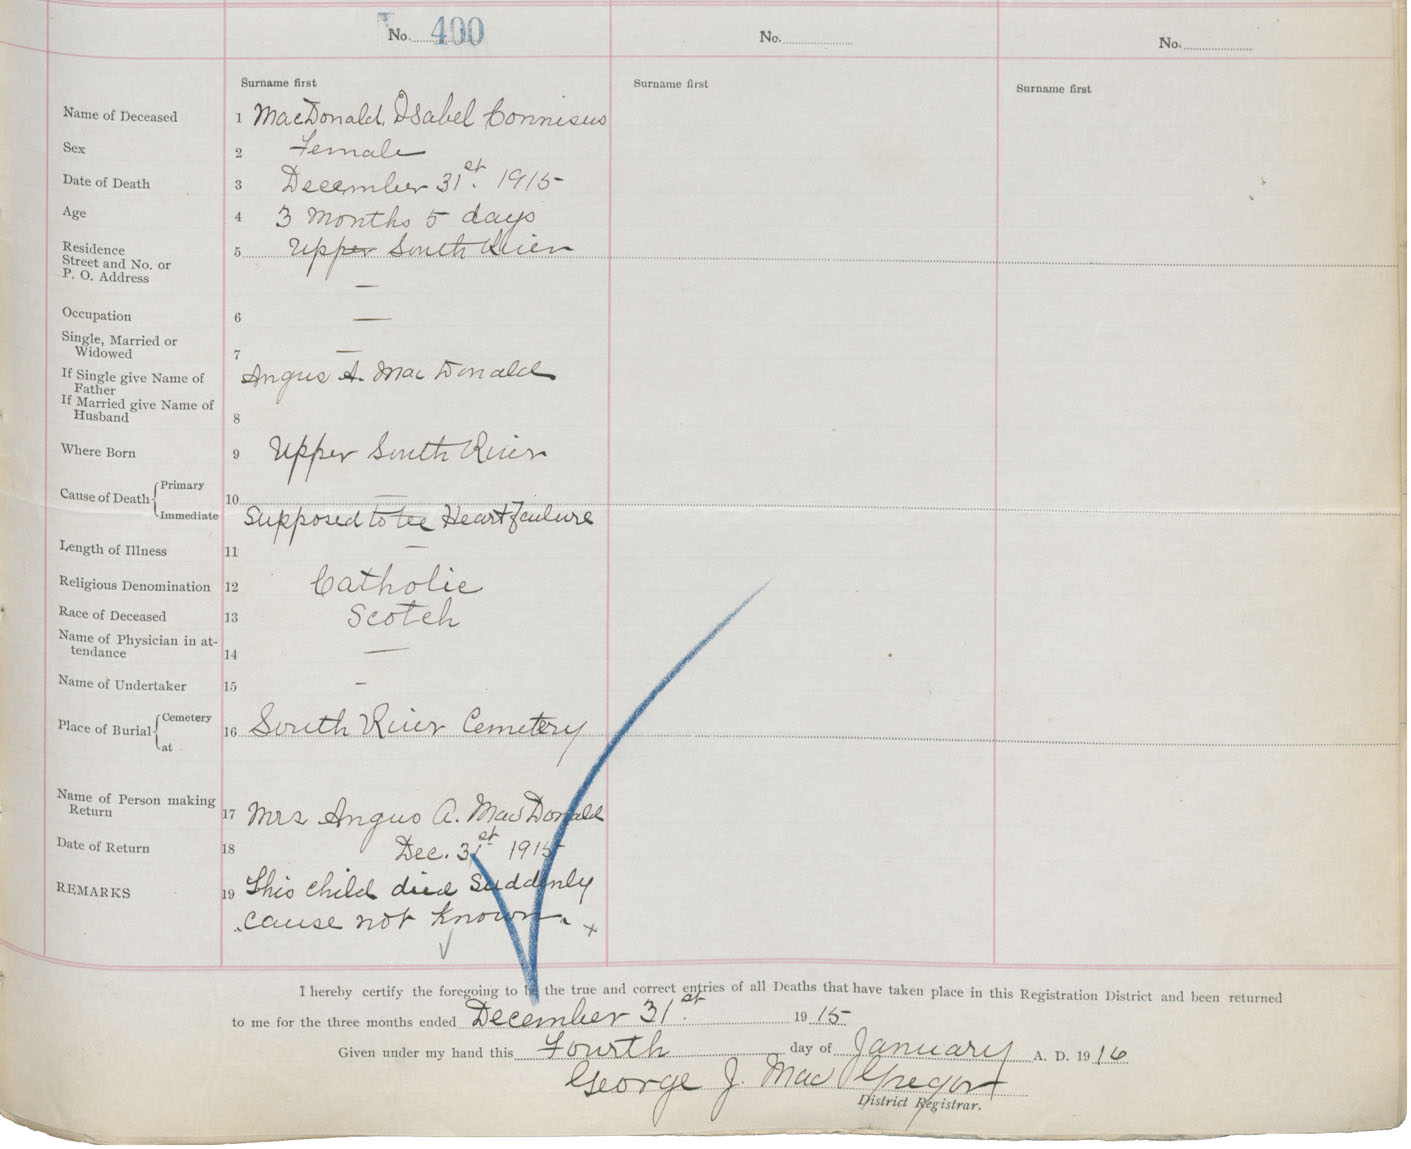 No. 400 No. No.
Surname first Surname first Surname first
Name of Deceased 1 MacDonald, Isabel
Sex 2 Female
Date of Death 3 December 31st. 1915
Age 4 3 months 5 days
Residence
Street and No. or 5 Upper South River
P. O. Address
—
Occupation 6 —
Single, Married or
Widowed 7 —
If Single give Name of Angus A. MacDonald
Father
If Married give Name of
Husband 8
Where Born 9 Upper South River
Cause of Death Primary 10 —
Immediate Supposed to be Heart failure
Length of Illness 11 —
Religious Denomination 12 Catholic
Race of Deceased 13 Scotch
Name of Physician in at-
tendance 14 —
Name of Undertaker 15 -
Place of Burial Cemetery 16 South River Cemetery
at
Name of Person making
Return 17 Mrs Angus A. MacDonald
Date of Return 18 Dec. 31st 1915
REMARKS 19 This child died suddenly
cause not known. x
I hereby certify the foregoing to be the true and correct entries of all Deaths that have taken place in this Registration District and been returned
to me for the three months ended December 31st. 1915
Given under my hand this Fourth day of January A. D. 1916
George J. MacGregor
District Registrar.